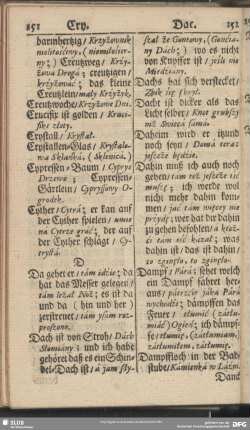 151
Cry.
barmhertzig/ Krzyżownik
Creutzweg/ Krży-
żowa Droga; creutzigen/
krzyżować; das kleine
Creutzlein mały Krzyżyk.
Creutzwoche/ Krzyżowe Dni.
Crucifix ist golden/ Kruci-
fiks złoty.
Crystall/ Krystał.
Crystallen-Glas/ Kryształo-
wa Sklanka, (Sklenica.)
Cypressen-Baum/ Cypry
Drzewo; Cypressen
Gärtlein/ Cypryssowy O-
grodek.
Cyther/ Cytra; er kan auf
der Cyther spielen/ umie
na Cytrze grać; der auf
der Cyther schlägt/ Cy-
trysta.
D
Da gehet er/ tám idzie; da
hat das Messer gelegen/
tám leżał Noż; es ist da
und da (hin und her)
zerstreuet/ tám ysám roz-
proszono.
Dach ist von Stroh/ Dách
Słomiány; und ich habe
gehöret daß es ein Schin-
del-Dach ist/ a jam sły-
Dac.
152
szał że Gontowy. (Goncia-
ny Dách;) wo es nicht
von Kupffer ist/ jeśli nie
Miedziany.
Dachs hat sich verstecket/
Zbik się skrył.
Dacht ist dicker als das
Licht selber/ Knot grubszy
niż Swieca samá.
Daheim wird er itzund
noch seyn/ Doma teraz
jeszcze będzie.
Dahin muß ich auch noch
gehen/ tám też jeszcze iść
muszę; ich werde wol
nicht mehr dahin kom-
men/ jać tám więcey nie
przydę; wer hat dir dahin
zu gehen befohlen/ á ktoż
ci tám iść kazał; was
dahin ist/ das ist dahin/
co zginęło, to zginęło.
Dampf/ Párá; sehet welch
ein Dampf fähret her-
aus/ pátrzcie jáka Párá
wychodzi; dämpffen das
Feuer/ tłumić (zátłu-
miáć) Ogień; ich dämpf-
fe/ tłumię, (zátłumiam,
zátłumiłem, zátłumię.
Dampfloch in der Bad-
stube/ Kamienka w Łaźni.
Damit
SLUB